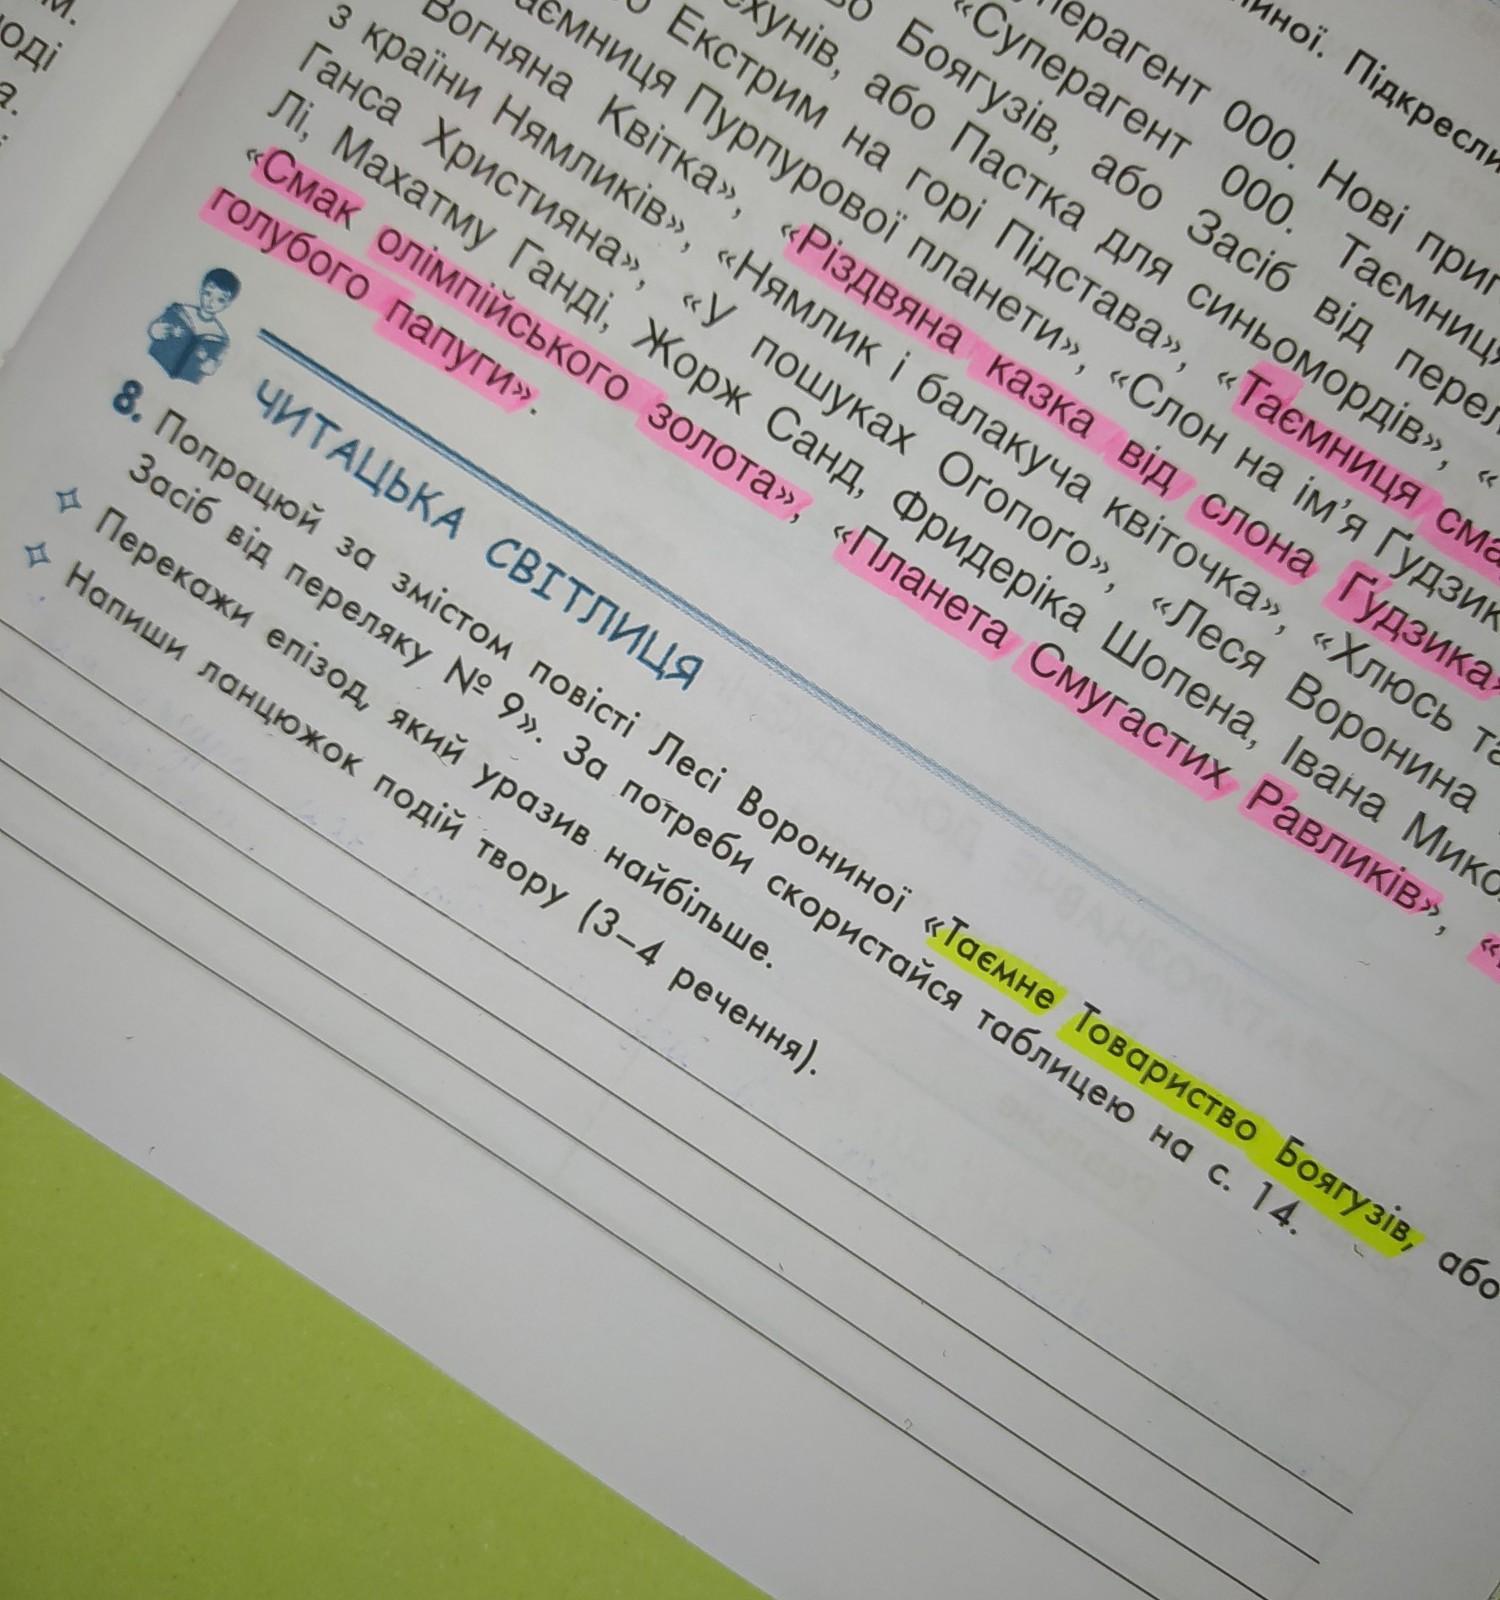 м.
оді
а.
иної. Підкресли
перагент 000. Нові приг
«Суперагент 000. Таємниця
во Боягузів, або Засіб від перел
ехунів, або Пастка для синьомордів», «
о Екстрим на горі Підстава», «Таємниця сма
аємниця Пурпурової планети», «Слон на ім’я Ґудзик
Вогняна Квітка», «Різдвяна казка від слона Ґудзика»
з країни Нямликів», «Нямлик і балакуча квіточка», «Хлюсь та
Ганса Християна», «У пошуках Огопоґо», «Леся Воронина
Лі, Махатму Ганді, Жорж Санд, Фридеріка Шопена, Івана Мико
«Смак олімпійського золота», «Планета Смугастих Равликів», «
голубого папуги».
ЧИТАЦЬКА СВІТЛИЦЯ
8. Попрацюй за змістом повісті Лесі Ворониної «Таємне Товариство Боягузів, або
Засіб від переляку № 9». За потреби скористайся таблицею на с. 14.
Перекажи епізод, який уразив найбільше.
Напиши ланцюжок подій твору (3–4 речення).